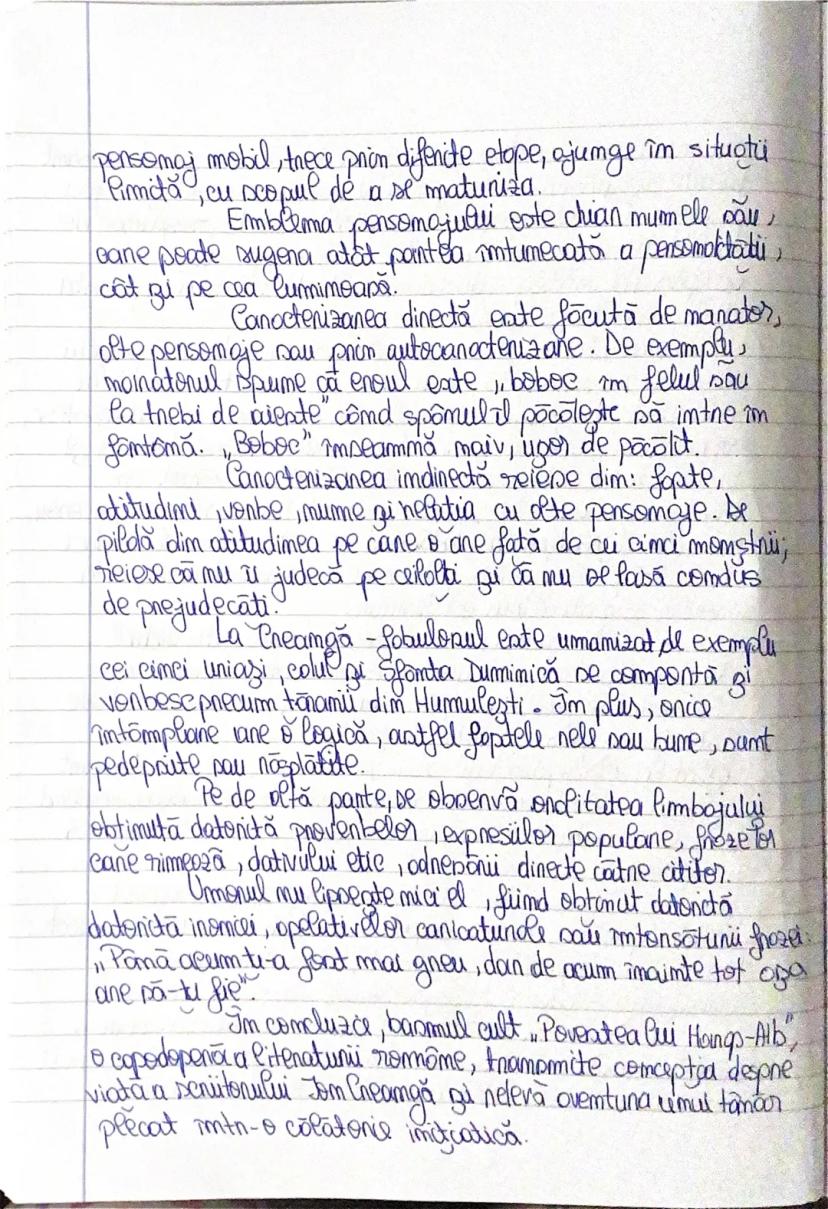 personaj mobil, trece prin diferite etape, ajunge în situații
limită, cu scopul de a se maturiza.
Emblema personajului este chiar numele său,
care poate sugera atât partea întunecată a personalității,
cât și pe cea luminoasă.
Caracterizarea directă este făcută de narator,
alte personaje sau prin autocaracterizare. De exemplu,
naratorul spune că eroul este „boboc în felul său
la trebi de aieste" când spânul îl păcălește să intre în
fântână. „Boboc" înseamnă naiv, ușor de păcălit.
Caracterizarea indirectă reiese din: fapte,
atitudini, vorbe, nume și relația cu alte personaje. De
pildă din atitudinea pe care o are față de cei cinci monștrii,
reiese că nu îi judecă pe ceilalți și că nu se lasă condus
de prejudecăți.
La Creangă - fabulosul este umanizat, de exemplu
cei cinci uriași, calul și Sfânta Duminică se comportă și
vorbesc precum țăranii din Humulești. În plus, orice
întâmplare are o logică, astfel faptele rele sau bune, sunt
pedepsite sau răsplătite.
Pe de altă parte, se observă oralitatea limbajului
obținută datorită proverbelor, expresiilor populare, frazelor
care rimează, dativului etic, adresării directe către cititor.
Umorul nu lipsește nici el, fiind obținut datorită
datorită ironiei, apelativelor caricaturale sau întorsăturii frazei:
„Până acum ți-a fost mai greu, dar de acum înainte tot așa
are să-ți fie".
În concluzie, basmul cult „Povestea lui Harap-Alb",
o capodoperă a literaturii române, transmite concepția despre
viață a scriitorului Ion Creangă și relevă aventura unui tânăr
plecat într-o călătorie inițiatică.